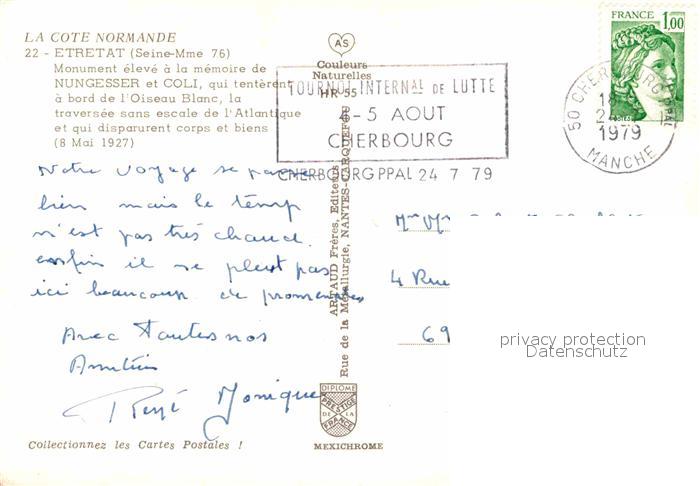 LA COTE NORMANDE
22 - ETRETAT (Seine-Mme 76)
Monument élevé à la mémoire de
NUNGESSER et COLI, qui tentèrent
à bord de l'Oiseau Blanc, la
traversée sans escale de l'Atlantique
et qui disparurent corps et biens
(8 Mai 1927)
AS
Couleurs
Naturelles
HR 55
TOURNOI INTERNAL DE LUTTE
4-5 AOUT
CHERBOURG
CHERBOURG PPAL 24 7 79
FRANCE 1,00
50 CHERBOURG PPAL
18
24
1979
MANCHE
Notre voyage se passe
bien mais le temps
n'est pas très chaud.
enfin il ne pleut pas
ici beaucoup de promenades
Avec toutes nos
Amitiés
René Monique
ARTAUD Frères, Editeurs
Rue de la Métallurgie, NANTES-CARQUEFOU
4 Rue
69
privacy protection
Datenschutz
DIPLOME
PRESTIGE
DE LA
FRANCE
MEXICHROME
Collectionnez les Cartes Postales !